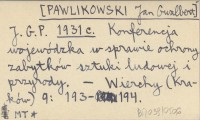 [PAWLIKOWSKI Jan Gwalbert]
J.G.P. 1931 c. Konferencja
wojewódzka w sprawie ochrony
zabytków sztuki ludowej i
przyrody. — Wierchy (Kra-
ków) 9: 193-194.
MT*